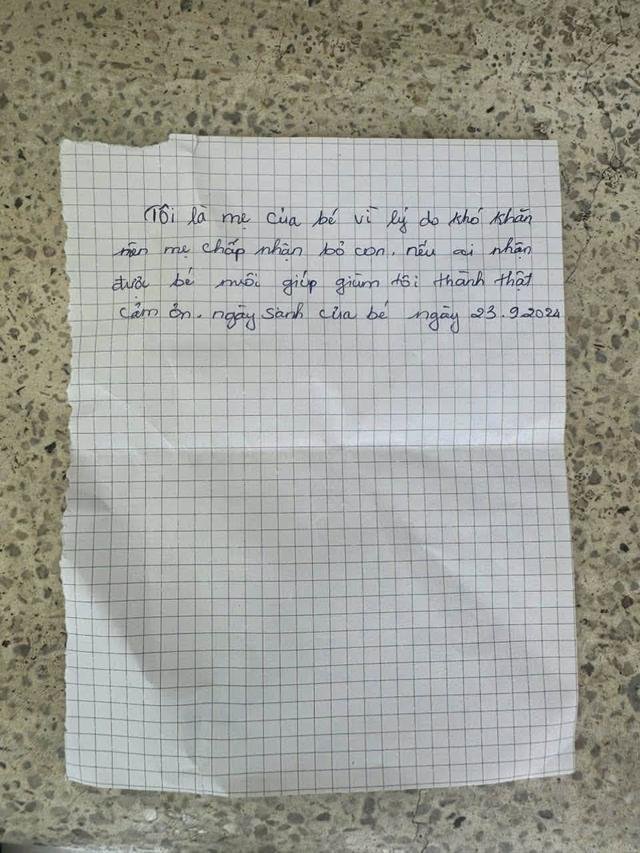 Tôi là mẹ của bé vì lý do khó khăn
nên mẹ chấp nhận bỏ con. nếu ai nhận
được bé nuôi giúp giùm tôi thành thật
cảm ơn. ngày sanh của bé ngày 23.9.2024